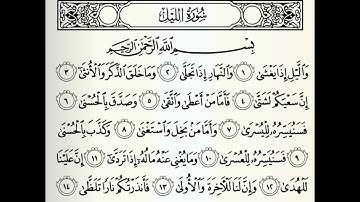 سُورَةُ اللَّيْلِ
بِسْمِ اللَّهِ الرَّحْمَٰنِ الرَّحِيمِ
وَاللَّيْلِ إِذَا يَغْشَىٰ ١ وَالنَّهَارِ إِذَا تَجَلَّىٰ ٢ وَمَا خَلَقَ الذَّكَرَ وَالْأُنثَىٰ ٣
إِنَّ سَعْيَكُمْ لَشَتَّىٰ ٤ فَأَمَّا مَنْ أَعْطَىٰ وَاتَّقَىٰ ٥ وَصَدَّقَ بِالْحُسْنَىٰ ٦
فَسَنُيَسِّرُهُ لِلْيُسْرَىٰ ٧ وَأَمَّا مَنْ بَخِلَ وَاسْتَغْنَىٰ ٨ وَكَذَّبَ بِالْحُسْنَىٰ
٩ فَسَنُيَسِّرُهُ لِلْعُسْرَىٰ ١٠ وَمَا يُغْنِي عَنْهُ مَالُهُ إِذَا تَرَدَّىٰ ١١ إِنَّ عَلَيْنَا
لَلْهُدَىٰ ١٢ وَإِنَّ لَنَا لَلْآخِرَةَ وَالْأُولَىٰ ١٣ فَأَنذَرْتُكُمْ نَارًا تَلَظَّىٰ ١٤